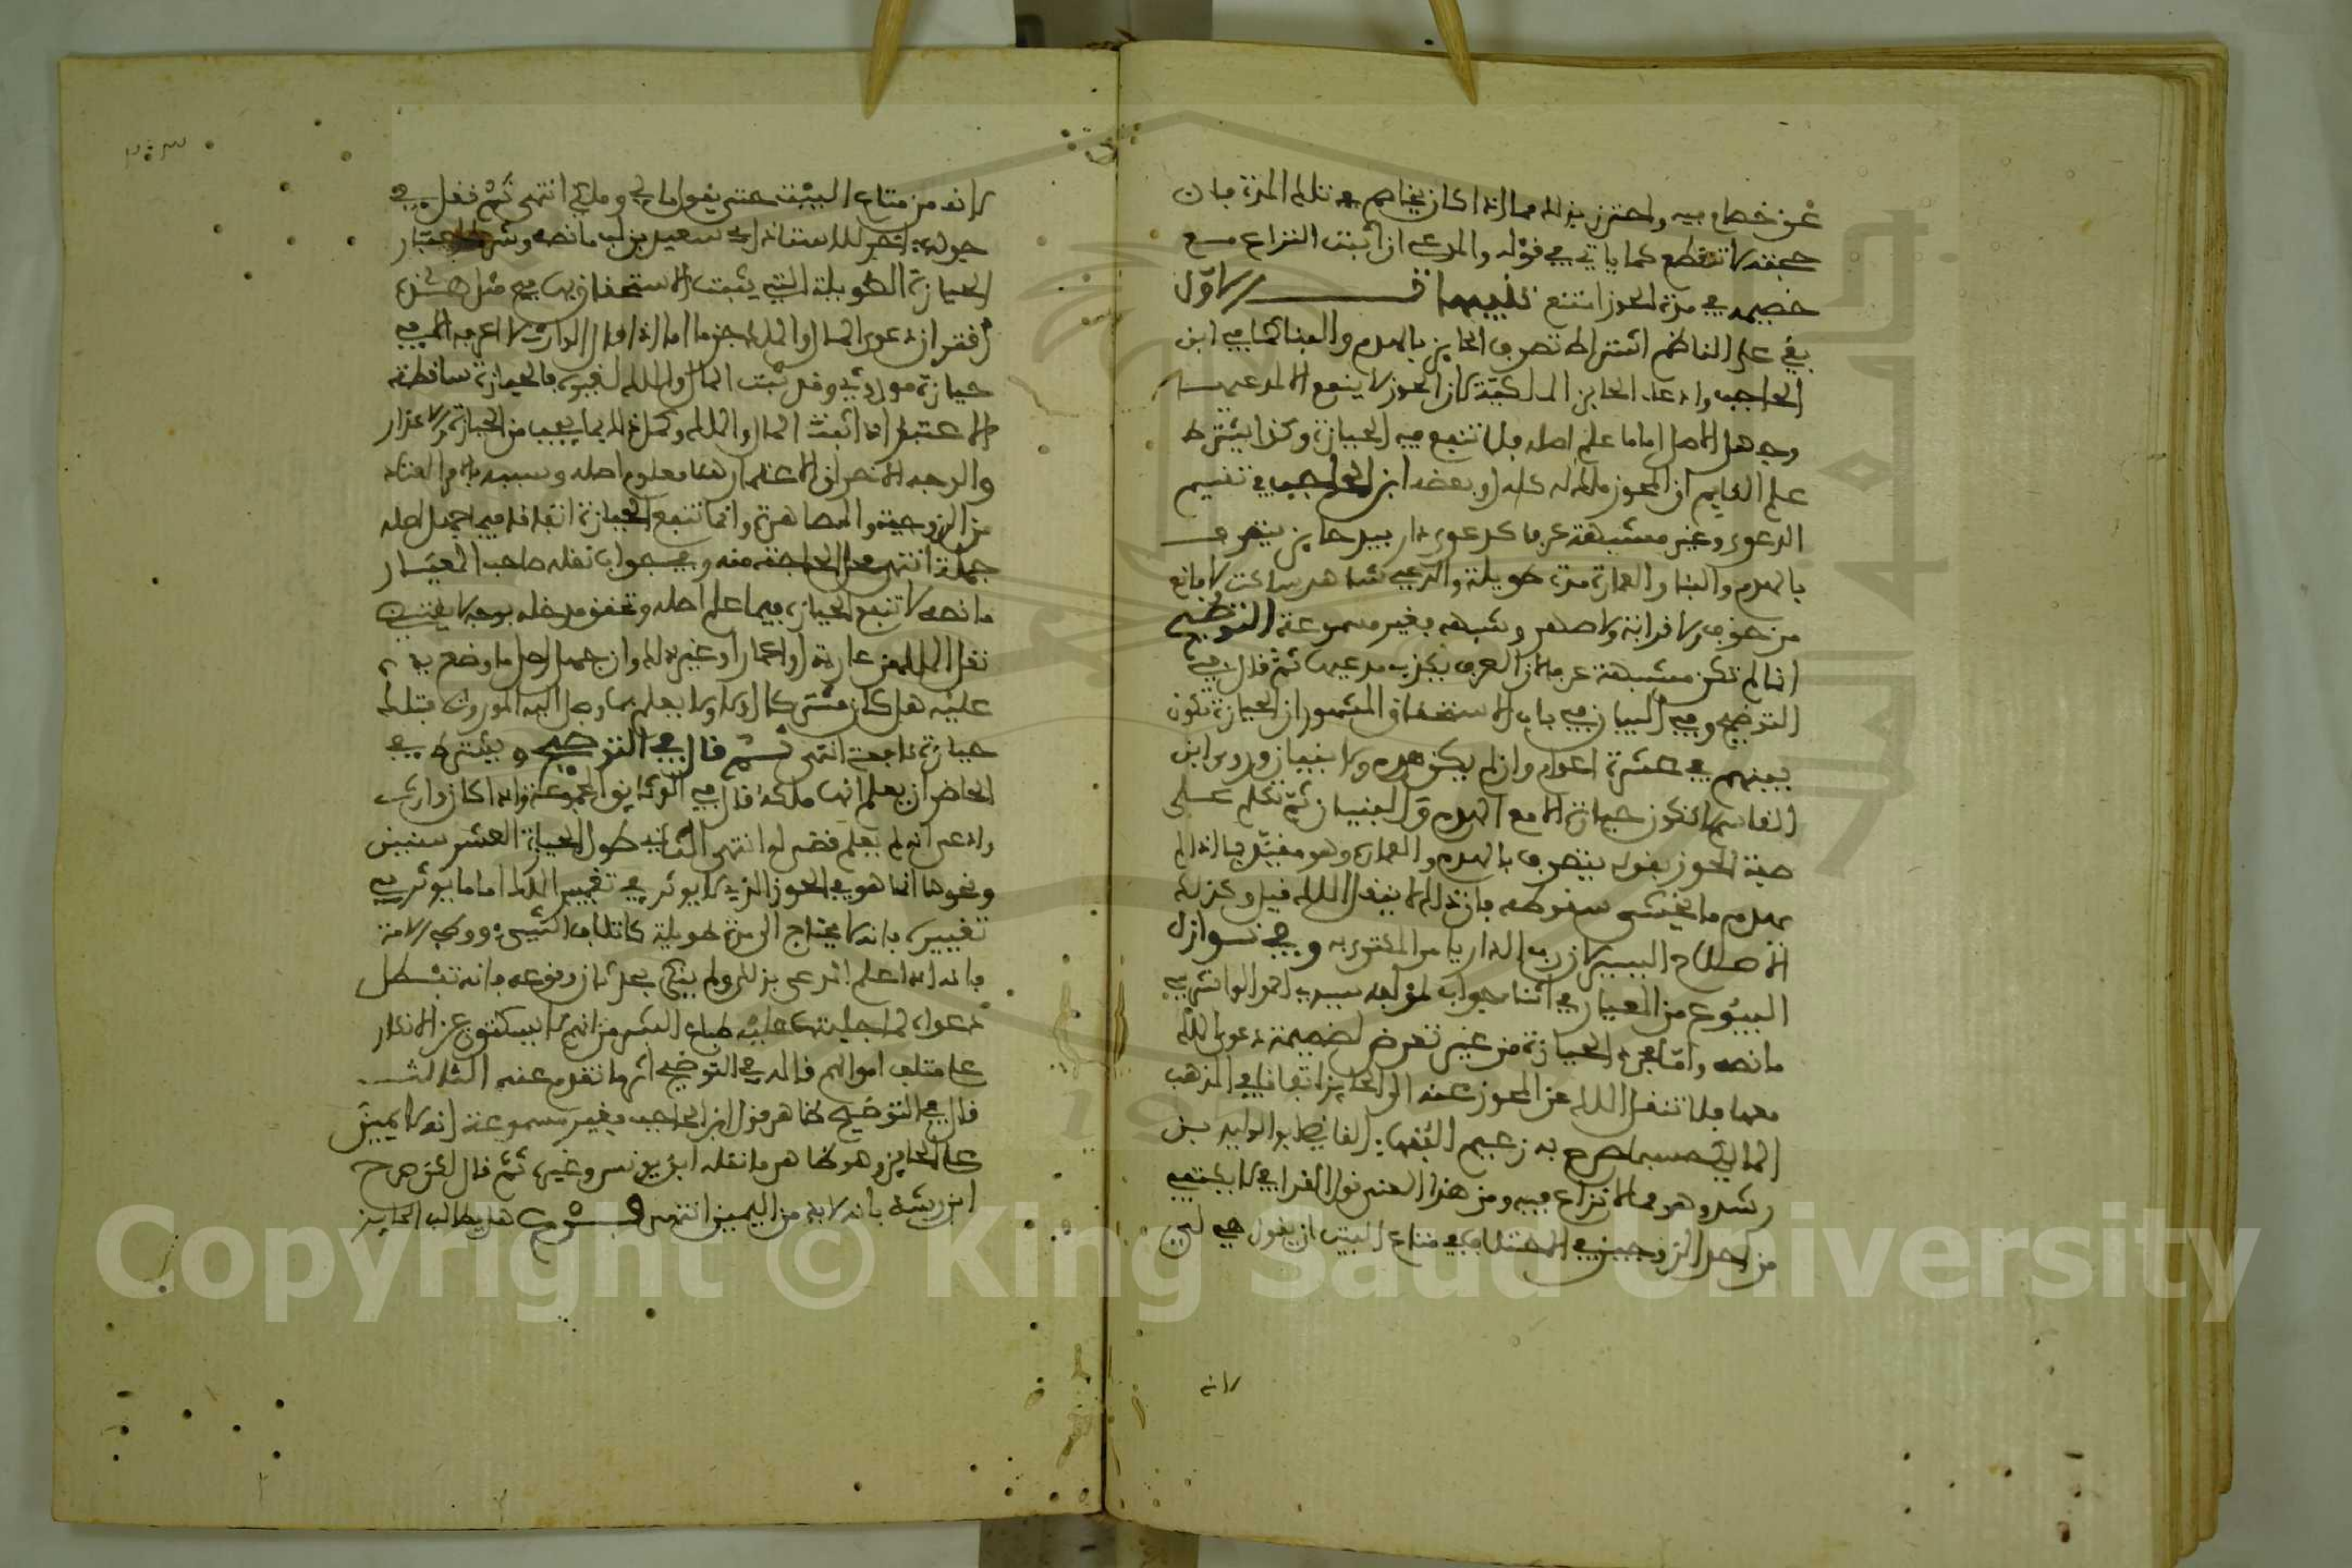 عن خصام فيه واحترز بذلك مما اذا كان يخاصم في تلك المدة فان
حجته لا تنقطع كما ياتي في قوله والمدعي ان اثبت النزاع مع
خصيمه في مدة الحوز انتفع تنبيهات الاول
بقي على الناظم اشتراط تصرف الحايز بالهدم والبنا كما في ابن
الحاجب وادعاء الحايز الملكية لان الحوز لا ينفع الا مدعيها
وجهل الاصل اما ما علم اصله فلا تنفع فيه الحيازة وكذا يشترط
علم القايم ان المحوز ملك له كله او بعضه ابن الحاجب في تقسيم
الدعوى وغير مشبهة عرفا كدعوى دار بيد حايز يتصرف
بالهدم والبنا والعمارة مدة طويلة والمدعي شاهد ساكت ولا مانع
من خوف ولا قرابة ولا صهر وشبهه فغير مسموعة التوضيح
انما لم تكن مشبهة عرفا لان العرف يكذب مدعيها ثم قال في
التوضيح وفي البيان في باب الاستحقاق المشهور ان الحيازة تكون
بينهم في عشرة اعوام وان لم يكن هدم ولا بنيان وروى ابن
القاسم لا تكون حيازة الا مع الهدم والبنيان ثم تكلم على
صفة الحوز بقوله يتصرف بالهدم والعمارة وهو مقيد بما اذا لم
يهدم ما يخشى سقوطه فان ذلك لا ينقل الملك قيل وكذلك
الاصلاح اليسير لان رب الدار يامر المكتري به وفي نوازل
البيوع من المعيار في اثنا جواب لمؤلفه سيدي احمد الوانشريسي
ما نصه واما مجرد الحيازة من غير تعرض لضميمة دعوى الملك
معها فلا تنقل الملك عن المحوز عنه الى الحايز اتفاقا في المذهب
المالكي حسبما صرح به زعيم الفقهاء القاضي ابو الوليد بن
رشد وهو مما لا نزاع فيه ومن هذا المعنى قول القرافي لا يكتفى
من احد الزوجين في الاختلاف في متاع البيت ان يقول هو لي
لانه
٢٠٣
لانه من متاع البيت حتى يقول مالي وملكي انتهى ثم نقل في
جوابه اخر للاستاذ ابي سعيد بن لب ما نصه وشرط اعتبار
الحيازة الطويلة التي يثبت الاستحقاق بها في مثل هذه
افتقر ان دعوى المال والملك جزما اما اذا قال الوارث لا اعرف الا في
حيازة موروثي وقد ثبت المال والملك لغيره فالحيازة ساقطة
الاعتبار اذا اثبت المال والملك وكمل ذلك بما يجب من الحيازة والاعذار
والوجه الاخر ان الاعتمار هنا معلوم اصله وسببه بامر المعتاد
من الزوجية والمصاهرة وانما تنفع الحيازة اتفاقا فيما جهل اصله
جملة انتهى محل الحاجة منه وفي جواب نقله صاحب المعيار
ما نصه لا تنفع الحيازة فيما علم اصله وتحقق مدخله بوجه لا يقتضي
نقل الملك من عارية او اعمار او غير ذلك وان جهل اصل ما وضع يده
عليه هل كان مشتركا ام لا ولا يعلم بما وصل اليه الموروث فتلك
حيازة نافعة انتهى ثم قال في التوضيح ويشترط في
الحاضر ان يعلم انها ملكه قال في الوثايق المجموعة واذا كان وارث
وادعى انه لم يعلم قضي له انتهى الثاني طول الحيازة العشر سنين
ونحوها انما هو في الحوز الذي لا يوثر في تغيير الملك اما ما يوثر في
تغييره فانه لا يحتاج الى مدة طويلة كاتلاف الشيء ووطء الامة
فانه اذا علم المدعى بذلك ولم ينكر بحدثان وقوعه فانه تبطل
دعواه لما جبلت عليه طباع البشر من انهم لا يسكتون عن الانكار
على متلف اموالهم قاله في التوضيح اثر ما تقدم عنه الثالث
قال في التوضيح ظاهر قول ابن الحاجب فغير مسموعة انه لا يمين
على الحايز وهو ظاهر ما نقله ابن يونس وغيره ثم قال لكن صرح
ابن رشد بانه لا بد من اليمين انتهى فرع هل يطالب الحايز
Copyright © King Saud University